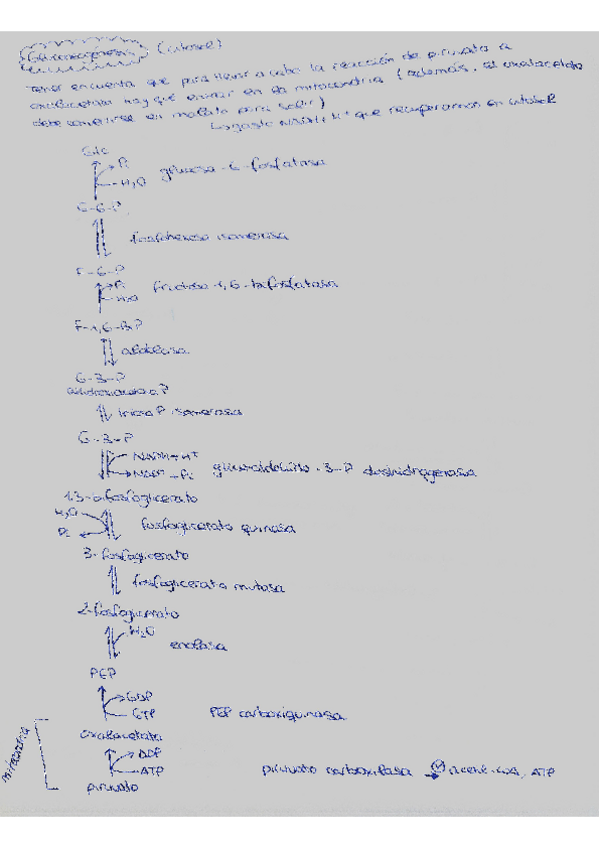 Gluconeogénesis (citosol)
Tener en cuenta que para llevar a cabo la reacción de piruvato a
oxalacetato hay que entrar en la mitocondria (además, el oxalacetato
debe convertirse en malato para salir)
Ly gasto NADH+H+ que recuperamos en citosol
Glc
Pi
H2O
glucosa-6-fosfatasa
G-6-P
fosfohexosa isomerasa
F-6-P
Pi
H2O
fructosa-1,6-bifosfatasa
F-1,6-BP
aldolasa
G-3-P
trioso P isomerasa
G-3-P
NADH+H+
NAD+ Pi
gliceraldehido-3-P deshidrogenasa
1,3-bifosfoglicerato
H2O
Pi
fosfoglicerato quinasa
3-fosfoglicerato
fosfoglicerato mutasa
2-fosfoglicerato
H2O
enolasa
PEP
GDP
GTP
PEP carboxiquinasa
oxalacetato
mitocondria
ADP
ATP
piruvato carboxilasa
acetil-CoA, ATP
piruvato